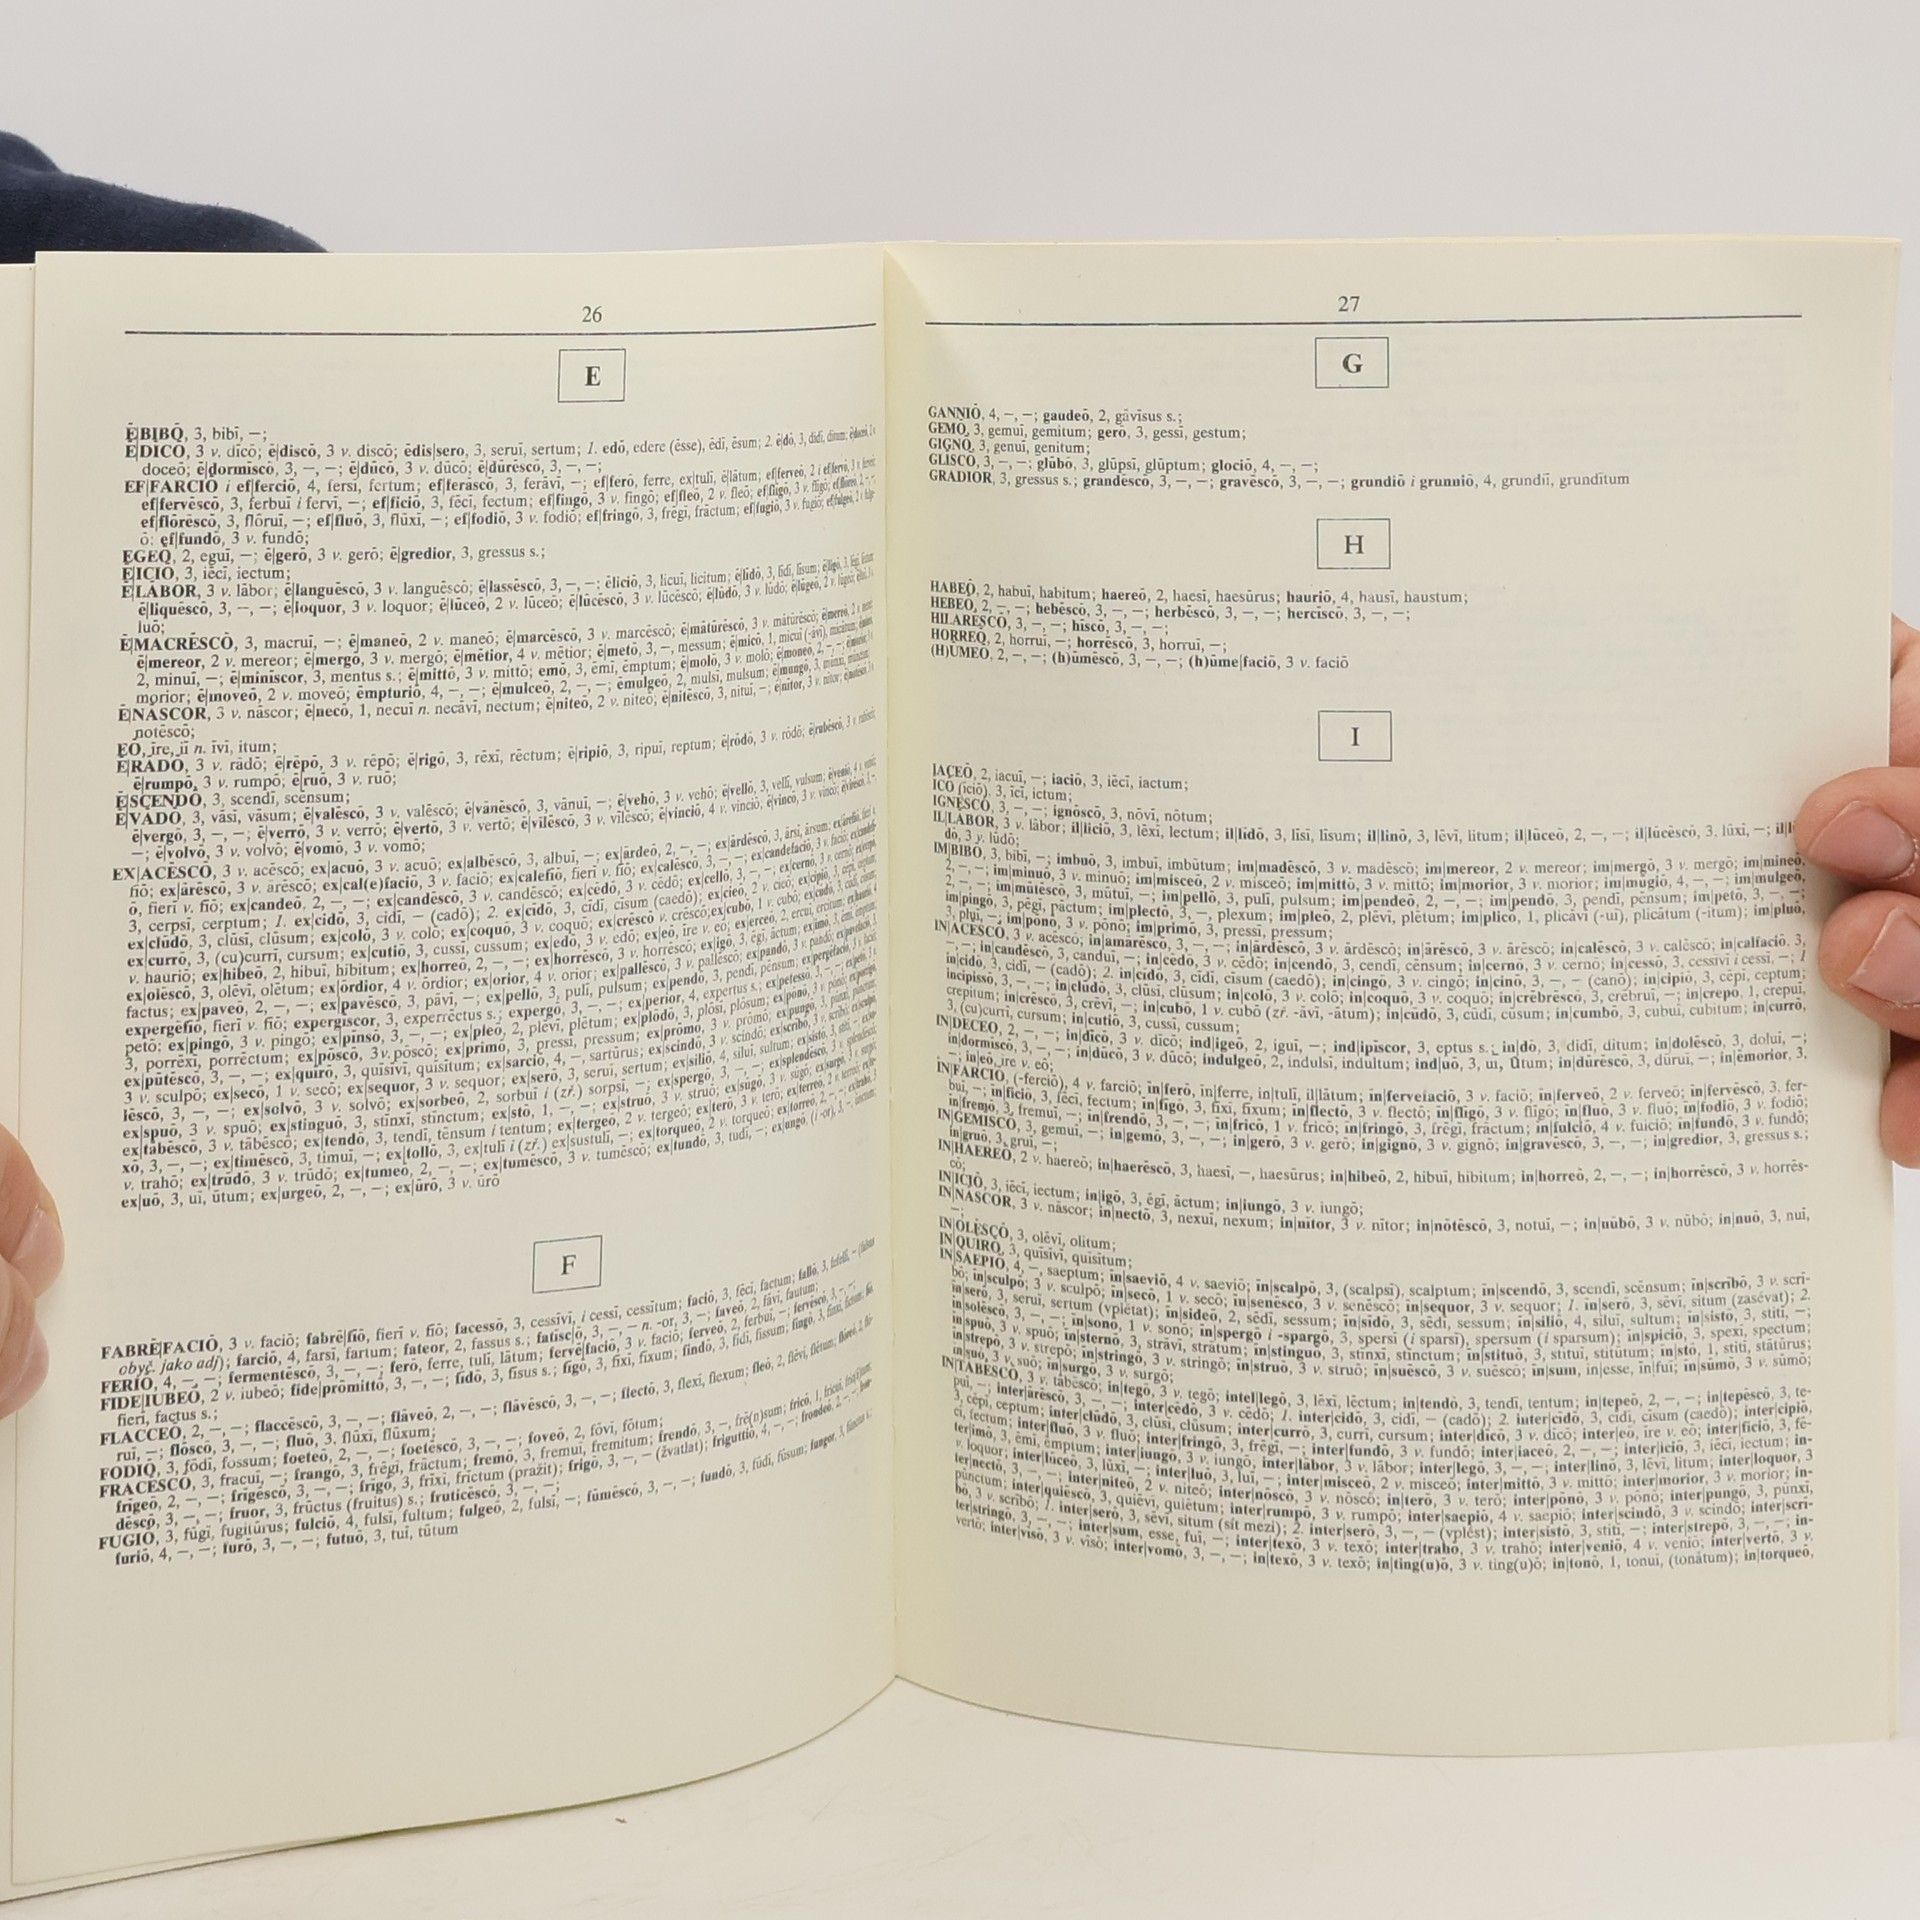 26
E
Ē|BIBŌ, 3, bibī, –;
Ē|DĪCŌ, 3 v. dīcō; ē|discō, 3 v. discō; ēdis|sero, 3, seruī, sertum; 1. edō, edere (ēsse), ēdī, ēsum; 2. ē|dō, 3, didī, ditum;
doceō; ē|dormīscō, 3, –, –; ē|dūcō, 3 v. dūcō; ē|dūrēscō, 3, –, –;
EF|FARCIŌ i ef|ferciō, 4, fersī, fertum; ef|ferāscō, 3, ferāvī, –; ef|ferō, ferre, ex|tulī, ē|lātum; ef|ferveō, 2 i ef|fervō, 3
ef|fervēscō, 3, ferbuī i fervī, –; ef|ficiō, 3, fēcī, fectum; ef|fingō, 3 v. fingō; ef|fleō, 2 v. fleō; ef|flīgō, 3 v. flīgō;
ef|flōrēscō, 3, flōruī, –; ef|fluō, 3, flūxī, –; ef|fodiō, 3 v. fodiō; ef|fringō, 3, frēgī, frāctum; ef|fugiō, 3 v. fugiō;
ō; ef|fundō, 3 v. fundō;
EGEŌ, 2, eguī, –; ē|gerō, 3 v. gerō; ē|gredior, 3, gressus s.;
Ē|ICIŌ, 3, iēcī, iectum;
Ē|LĀBOR, 3 v. lābor; ē|languēscō, 3 v. languēscō; ē|lassēscō, 3, –, –; ēliciō, 3, licuī, licitum; ē|līdō, 3, līdī, līsum;
ē|liquēscō, 3, –, –; ē|loquor, 3 v. loquor; ē|lūceō, 2 v. lūceō; ē|lūcēscō, 3 v. lūcēscō; ē|lūdō, 3 v. lūdō; ē|lūgeō, 2 v. lūgeō;
luō;
Ē|MACRĒSCŌ, 3, macruī, –; ē|maneō, 2 v. maneō; ē|marcēscō, 3 v. marcēscō; ē|mātūrēscō, 3 v. mātūrēscō;
ē|mereor, 2 v. mereor; ē|mergō, 3 v. mergō; ē|mētior, 4 v. mētior; ē|metō, 3, –, messum; ē|micō, 1, micuī (-āvī), micātum;
2, minuī, –; ē|miniscor, 3, mentus s.; ē|mittō, 3 v. mittō; emō, 3, ēmī, ēmptum; ē|molō, 3 v. molō; ē|moneō, 2, –, –;
morior; ē|moveō, 2 v. moveō; ēmpturiō, 4, –, –; ē|mulceō, 2, –, –; ēmulgeō, 2, mulsī, mulsum; ē|mungō, 3,
Ē|NĀSCOR, 3 v. nāscor; ē|necō, 1, necuī n. necāvī, nectum; ē|niteō, 2 v. niteō; ē|nitēscō, 3, nituī, –; ē|nītor, 3 v. nītor;
nōtēscō;
EŌ, īre, iī n. īvī, itum;
Ē|RĀDŌ, 3 v. rādō; ē|rēpō, 3 v. rēpō; ē|rigō, 3, rēxī, rēctum; ē|ripiō, 3, ripuī, reptum; ē|rōdō, 3 v. rōdō; ē|rubēscō, 3
ē|rumpō, 3 v. rumpō; ē|ruō, 3 v. ruō;
Ē|SCENDŌ, 3, scendī, scēnsum;
Ē|VĀDŌ, 3, vāsī, vāsum; ē|valēscō, 3 v. valēscō; ē|vānēscō, 3, vānuī, –; ē|vehō, 3 v. vehō; ē|vellō, 3, vellī, vulsum;
ē|vergō, 3, –, –; ē|verrō, 3 v. verrō; ē|vertō, 3 v. vertō; ē|vīlēscō, 3 v. vīlēscō; ē|vinciō, 4 v. vinciō; ē|vincō, 3 v. vincō;
–; ē|volvō, 3 v. volvō; ē|vomō, 3 v. vomō;
EX|ACĒSCŌ, 3 v. acēscō; ex|acuō, 3 v. acuō; ex|albēscō, 3, albuī, –; ex|ārdeō, 2, –, –; ex|ārdēscō, 3, ārsī, ārsum;
fīō; ex|ārēscō, 3 v. ārēscō; ex|cal(e)faciō, 3 v. faciō; ex|calefīō, fierī v. fīō; ex|calēscō, 3, –, –; ex|candefaciō, 3 v. faciō;
ō, fierī v. fīō; ex|candeō, 2, –, –; ex|candēscō, 3 v. candēscō; ex|cēdō, 3 v. cēdō; ex|cellō, 3, –, –; ex|cernō, 3 v. cernō;
3, cerpsī, cerptum; 1. ex|cidō, 3, cidī, – (cadō); 2. ex|cīdō, 3, cīdī, cīsum (caedō); ex|cieō, 2 v. cieō;
ex|clūdō, 3, clūsī, clūsum; ex|colō, 3 v. colō; ex|coquō, 3 v. coquō; ex|crēscō v. crēscō; ex|cubō, 1 v. cubō;
ex|currō, 3, (cu)currī, cursum; ex|cutiō, 3, cussī, cussum; ex|edō, 3 v. edō; ex|eō, īre v. eō; ex|erceō, 2, ercuī, ercitum;
v. hauriō; ex|hibeō, 2, hibuī, hibitum; ex|horreō, 2, –, –; ex|horrēscō, 3 v. horrēscō; ex|igō, 3, ēgī, āctum;
ex|olēscō, 3, olēvī, olētum; ex|ōrdior, 4 v. ōrdior; ex|orior, 4 v. orior; ex|pallēscō, 3 v. pallēscō; ex|pandō, 3 v. pandō;
factus; ex|paveō, 2, –, –; ex|pavēscō, 3, pāvī, –; ex|pellō, 3, pulī, pulsum; ex|pendō, 3, pendī, pēnsum;
expergēfīō, fierī v. fīō; expergīscor, 3, experrēctus s.; expergō, 3, –, –; ex|perior, 4, expertus s.; ex|petessō, 3, –, –;
petō; ex|pingō, 3 v. pingō; ex|pīnsō, 3, –, –; ex|pleō, 2, plēvī, plētum; ex|plōdō, 3, plōsī, plōsum; ex|pōnō, 3 v. pōnō;
3, porrēxī, porrēctum; ex|pōscō, 3v. pōscō; ex|primō, 3, pressī, pressum; ex|prōmō, 3 v. prōmō;
ex|pūtēscō, 3, –, –; ex|quīrō, 3, quīsīvī, quīsītum; ex|sarciō, 4, –, sartūrus; ex|scindō, 3 v. scindō; ex|scrībō, 3 v. scrībō;
3 v. sculpō; ex|secō, 1 v. secō; ex|sequor, 3 v. sequor; ex|serō, 3, seruī, sertum; ex|siliō, 4, siluī, sultum;
lēscō, 3, –, –; ex|solvō, 3 v. solvō; ex|sorbeō, 2, sorbuī i (zř.) sorpsī, –; ex|spergō, 3, –, –; ex|splendēscō,
ex|spuō, 3 v. spuō; ex|stinguō, 3, stīnxī, stīnctum; ex|stō, 1, –, –; ex|struō, 3 v. struō; ex|sūgō, 3 v. sūgō;
ex|tābēscō, 3 v. tābēscō; ex|tendō, 3, tendī, tēnsum i tentum; ex|tergeō, 2 v. tergeō; ex|terō, 3 v. terō; ex|terreō, 2 v.
xō, 3, –, –; ex|timēscō, 3, timuī, –; ex|tollō, 3, ex|tulī i (zř.) ex|sustulī, –; ex|torqueō, 2 v. torqueō; ex|torreō, 2, –, –;
v. trahō; ex|trūdō, 3 v. trūdō; ex|tumeō, 2, –, –; ex|tumēscō, 3 v. tumēscō; ex|tundō, 3, tudī, –; ex|ungō,
ex|uō, 3, uī, ūtum; ex|urgeō, 2, –, –; ex|ūrō, 3 v. ūrō
F
FABRĒ|FACIŌ, 3 v. faciō; fabrē|fīō, fierī v. fīō; facessō, 3, cessīvī, i cessī, cessītum; faciō, 3, fēcī, factum; fallō, 3, fefellī, –
obyč. jako adj); farciō, 4, farsī, fartum; fateor, 2, fassus s.; fatīsc|ō, 3, –, – n. -or, 3, –; faveō, 2, fāvī, fautum;
FERIŌ, 4, –, –; fermentēscō, 3, –, –; ferō, ferre, tulī, lātum; fervē|faciō, 3 v. faciō; ferveō, 2, ferbuī, –; fervēscō, 3, –, –;
FIDE|IUBEŌ, 2 v. iubeō; fide|prōmittō, 3, –, –; fīdō, 3, fīsus s.; fīgō, 3, fīxī, fīxum; findō, 3, fidī, fissum; fingō, 3, fīnxī, fictum; fīō,
fierī, factus s.;
FLACCEŌ, 2, –, –; flaccēscō, 3, –, –; flāveō, 2, –, –; flāvēscō, 3, –, –; flectō, 3, flexī, flexum; fleō, 2, flēvī, flētum; flōreō, 2, flō-
ruī, –; flōscō, 3, –, –; fluō, 3, flūxī, flūxum;
FODIŌ, 3, fōdī, fossum; foeteō, 2, –, –; foetēscō, 3, –, –; foveō, 2, fōvī, fōtum;
FRACĒSCŌ, 3, fracuī, –; frangō, 3, frēgī, frāctum; fremō, 3, fremuī, fremitum; frendō, 3, –, frē(n)sum; fricō, 1, fricuī,
frīgeō, 2, –, –; frīgēscō, 3, –, –; frīgō, 3, frīxī, frīctum (pražit); frigō, 3, –, – (žvatlat); friguttiō, 4, –, –; frondeō, 2, –, –;
dēscō, 3, –, –; fruor, 3, frūctus (fruitus) s.; fruticēscō, 3, –, –;
FUGIŌ, 3, fūgī, fugitūrus; fulciō, 4, fulsī, fultum; fulgeō, 2, fulsī, –; fūmēscō, 3, –, –; fundō, 3, fūdī, fūsum; fungor, 3, fūnctus s.;
furiō, 4, –, –; furō, 3, –, –; futuō, 3, tuī, tūtum
27
G
GANNIŌ, 4, –, –; gaudeō, 2, gāvīsus s.;
GEMŌ, 3, gemuī, gemitum; gerō, 3, gessī, gestum;
GIGNŌ, 3, genuī, genitum;
GLISCŌ, 3, –, –; glūbō, 3, glūpsī, glūptum; glociō, 4, –, –;
GRADIOR, 3, gressus s.; grandēscō, 3, –, –; gravēscō, 3, –, –; grundiō i grunniō, 4, grundiī, grundītum
H
HABEŌ, 2, habuī, habitum; haereō, 2, haesī, haesūrus; hauriō, 4, hausī, haustum;
HEBEŌ, 2, –, –; hebēscō, 3, –, –; herbēscō, 3, –, –; hercīscō, 3, –, –;
HILARĒSCŌ, 3, –, –; hīscō, 3, –, –;
HORREŌ, 2, horruī, –; horrēscō, 3, horruī, –;
(H)ŪMEŌ, 2, –, –; (h)ūmēscō, 3, –, –; (h)ūme|faciō, 3 v. faciō
I
IACEŌ, 2, iacuī, –; iaciō, 3, iēcī, iactum;
ĪCŌ (īciō), 3, īcī, ictum;
IGNĒSCŌ, 3, –, –; ignōscō, 3, nōvī, nōtum;
IL|LĀBOR, 3 v. lābor; il|liciō, 3, lēxī, lectum; il|līdō, 3, līsī, līsum; il|linō, 3, lēvī, litum; il|lūceō, 2, –, –; il|lūcēscō, 3. lūxī, –;
dō, 3 v. lūdō;
IM|BIBŌ, 3, bibī, –; imbuō, 3, imbuī, imbūtum; im|madēscō, 3 v. madēscō; im|mereor, 2 v. mereor; im|mergō, 3 v. mergō; im|mineō,
2, –, –; im|minuō, 3 v. minuō; im|misceō, 2 v. misceō; im|mittō, 3 v. mittō; im|morior, 3 v. morior; im|mūgiō, 4, –, –; im|mulgeō,
2, –, –; im|mūtēscō, 3, mūtuī, –; im|pellō, 3, pulī, pulsum; im|pendeō, 2, –, –; im|pendō, 3, pendī, pēnsum; im|petō, 3, –, –;
im|pingō, 3, pēgī, pāctum; im|plectō, 3, –, plexum; im|pleō, 2, plēvī, plētum; im|plicō, 1, plicāvī (-uī), plicātum (-itum); im|pluō,
3, pluī, –; im|pōnō, 3 v. pōnō; im|primō, 3, pressī, pressum;
IN|ACĒSCŌ, 3 v. acēscō; in|amārēscō, 3, –, –; in|ārdēscō, 3 v. ārdēscō; in|ārēscō, 3 v. ārēscō; in|calēscō, 3 v. calēscō; in|calfaciō, 3,
–, –; in|candēscō, 3, canduī, –; in|cēdō, 3 v. cēdō; in|cendō, 3, cendī, cēnsum; in|cernō, 3 v. cernō; in|cessō, 3, cessīvī i cessī, –; 1
in|cidō, 3, cidī, – (cadō); 2. in|cīdō, 3, cīdī, cīsum (caedō); in|cingō, 3 v. cingō; in|cinō, 3, –, – (canō); in|cipiō, 3, cēpī, ceptum;
incipissō, 3, –, –; in|clūdō, 3, clūsī, clūsum; in|colō, 3 v. colō; in|coquō, 3 v. coquō; in|crēbrēscō, 3, crēbruī, –; in|crepō, 1, crepuī,
crepitum; in|crēscō, 3, crēvī, –; in|cubō, 1 v. cubō (zř. -āvī, -ātum); in|cūdō, 3, cūdī, cūsum; in|cumbō, 3, cubuī, cubitum; in|currō,
3, (cu)currī, cursum; in|cutiō, 3, cussī, cussum;
IN|DECEŌ, 2, –, –; in|dīcō, 3 v. dīcō; ind|igeō, 2, iguī, –; ind|ipīscor, 3, eptus s.; in|dō, 3, didī, ditum; in|dolēscō, 3, doluī, –;
in|dormīscō, 3, –, –; in|dūcō, 3 v. dūcō; indulgeō, 2, indulsī, indultum; ind|uō, 3, uī, ūtum; in|dūrēscō, 3, dūruī, –; in|ēmorior, 3,
–; in|eō, īre v. eō;
ĪN|FARCIŌ, (-ferciō), 4 v. farciō; īn|ferō, īn|ferre, in|tulī, il|lātum; īn|fervefaciō, 3 v. faciō; īn|ferveō, 2 v. ferveō; īn|fervēscō, 3. fer-
buī, –; īn|ficiō, 3, fēcī, fectum; īn|fīgō, 3, fīxī, fīxum; īn|flectō, 3 v. flectō; īn|flīgō, 3 v. flīgō; īn|fluō, 3 v. fluō; īn|fodiō, 3 v. fodiō;
īn|fremō, 3, fremuī, –; īn|frendō, 3, –, –; īn|fricō, 1 v. fricō; īn|fringō, 3, frēgī, frāctum; īn|fulciō, 4 v. fulciō; īn|fundō, 3 v. fundō;
IN|GEMĪSCŌ, 3, gemuī, –; in|gemō, 3, –, –; in|gerō, 3 v. gerō; in|gignō, 3 v. gignō; in|gravēscō, 3, –, –; in|gredior, 3, gressus s.;
in|gruō, 3, gruī, –;
IN|HAEREŌ, 2 v. haereō; in|haerēscō, 3, haesī, –, haesūrus; in|hibeō, 2, hibuī, hibitum; in|horreō, 2, –, –; in|horrēscō, 3 v. horrēs-
cō;
IN|ICIŌ, 3, iēcī, iectum; in|igō, 3, ēgī, āctum; in|iungō, 3 v. iungō;
IN|NĀSCOR, 3 v. nāscor; in|nectō, 3, nexuī, nexum; in|nītor, 3 v. nītor; in|nōtēscō, 3, notuī, –; in|nūbō, 3 v. nūbō; in|nuō, 3, nuī,
–;
IN|OLĒSCŌ, 3, olēvī, olitum;
IN|QUĪRŌ, 3, quīsīvī, quīsītum;
ĪN|SAEPIŌ, 4, –, saeptum; īn|saeviō, 4 v. saeviō; īn|scalpō, 3, (scalpsī), scalptum; īn|scendō, 3, scendī, scēnsum; īn|scrībō, 3 v. scrī-
bō; īn|sculpō, 3 v. sculpō; īn|secō, 1 v. secō; īn|senēscō, 3 v. senēscō; īn|sequor, 3 v. sequor; 1. īn|serō, 3, sēvī, situm (zasévat); 2.
īn|serō, 3, seruī, sertum (vplétat); īn|sideō, 2, sēdī, sessum; īn|sīdō, 3, sēdī, sessum; īn|siliō, 4, siluī, sultum; īn|sistō, 3, stitī, –;
īn|solēscō, 3, –, –; īn|sonō, 1 v. sonō; īn|spergō i -spargō, 3, spersī (i sparsī), spersum (i sparsum); īn|spiciō, 3, spexī, spectum;
īn|spuō, 3 v. spuō; īn|sternō, 3, strāvī, strātum; īn|stinguō, 3, stīnxī, stīnctum; īn|stituō, 3, stituī, stitūtum; īn|stō, 1, stitī, stātūrus;
īn|strepō, 3 v. strepō; īn|stringō, 3 v. stringō; īn|struō, 3 v. struō; īn|suēscō, 3 v. suēscō; īn|sum, in|esse, īn|fuī; īn|sūmō, 3 v. sūmō;
īn|suō, 3 v. suō; īn|surgō, 3 v. surgō;
IN|TĀBĒSCŌ, 3 v. tābēscō; in|tegō, 3 v. tegō; intel|legō, 3, lēxī, lēctum; in|tendō, 3, tendī, tentum; in|tepeō, 2, –, –; in|tepēscō, 3, te-
puī, –; inter|ārēscō, 3, –, –; inter|cēdō, 3 v. cēdō; 1. inter|cidō, 3, cidī, – (cadō); 2. inter|cīdō, 3, cīdī, cīsum (caedō); inter|cipiō,
3, cēpī, ceptum; inter|clūdō, 3, clūsī, clūsum; inter|currō, 3, currī, cursum; inter|dīcō, 3 v. dīcō; inter|eō, īre v. eō; inter|ficiō, 3, fē-
cī, fectum; inter|fluō, 3 v. fluō; inter|fringō, 3, frēgī, –; inter|fundō, 3 v. fundō; inter|iaceō, 2, –, –; inter|iciō, 3, iēcī, iectum; in-
ter|imō, 3, ēmī, ēmptum; inter|iungō, 3 v. iungō; inter|lābor, 3 v. lābor; inter|legō, 3, –, –; inter|linō, 3, lēvī, litum; inter|loquor, 3
v. loquor; inter|lūceō, 3, lūxī, –; inter|luō, 3, luī, –; inter|misceō, 2 v. misceō; inter|mittō, 3 v. mittō; inter|morior, 3 v. morior; in-
ter|nectō, 3, –, –; inter|niteō, 2 v. niteō; inter|nōscō, 3 v. nōscō; in|terō, 3 v. terō; inter|pōnō, 3 v. pōnō; inter|pungō, 3, pūnxī,
pūnctum; inter|quiēscō, 3, quiēvī, quiētum; inter|rumpō, 3 v. rumpō; inter|saepiō, 4 v. saepiō; inter|scindō, 3 v. scindō; inter|scrī-
bō, 3 v. scrībō; 1. inter|serō, 3, sēvī, situm (sít mezi); 2. inter|serō, 3, –, – (vplést); inter|sistō, 3, stitī, –; inter|strepō, 3, –, –; in-
ter|stringō, 3, –, –; inter|sum, esse, fuī, –; inter|texō, 3 v. texō; inter|trahō, 3 v. trahō; inter|veniō, 4 v. veniō; inter|vertō, 3 v.
vertō; inter|vīsō, 3 v. vīsō; inter|vomō, 3, –, –; in|texō, 3 v. texō; in|ting(u)ō, 3 v. ting(u)ō; in|tonō, 1, tonuī, (tonātum); in|torqueō,